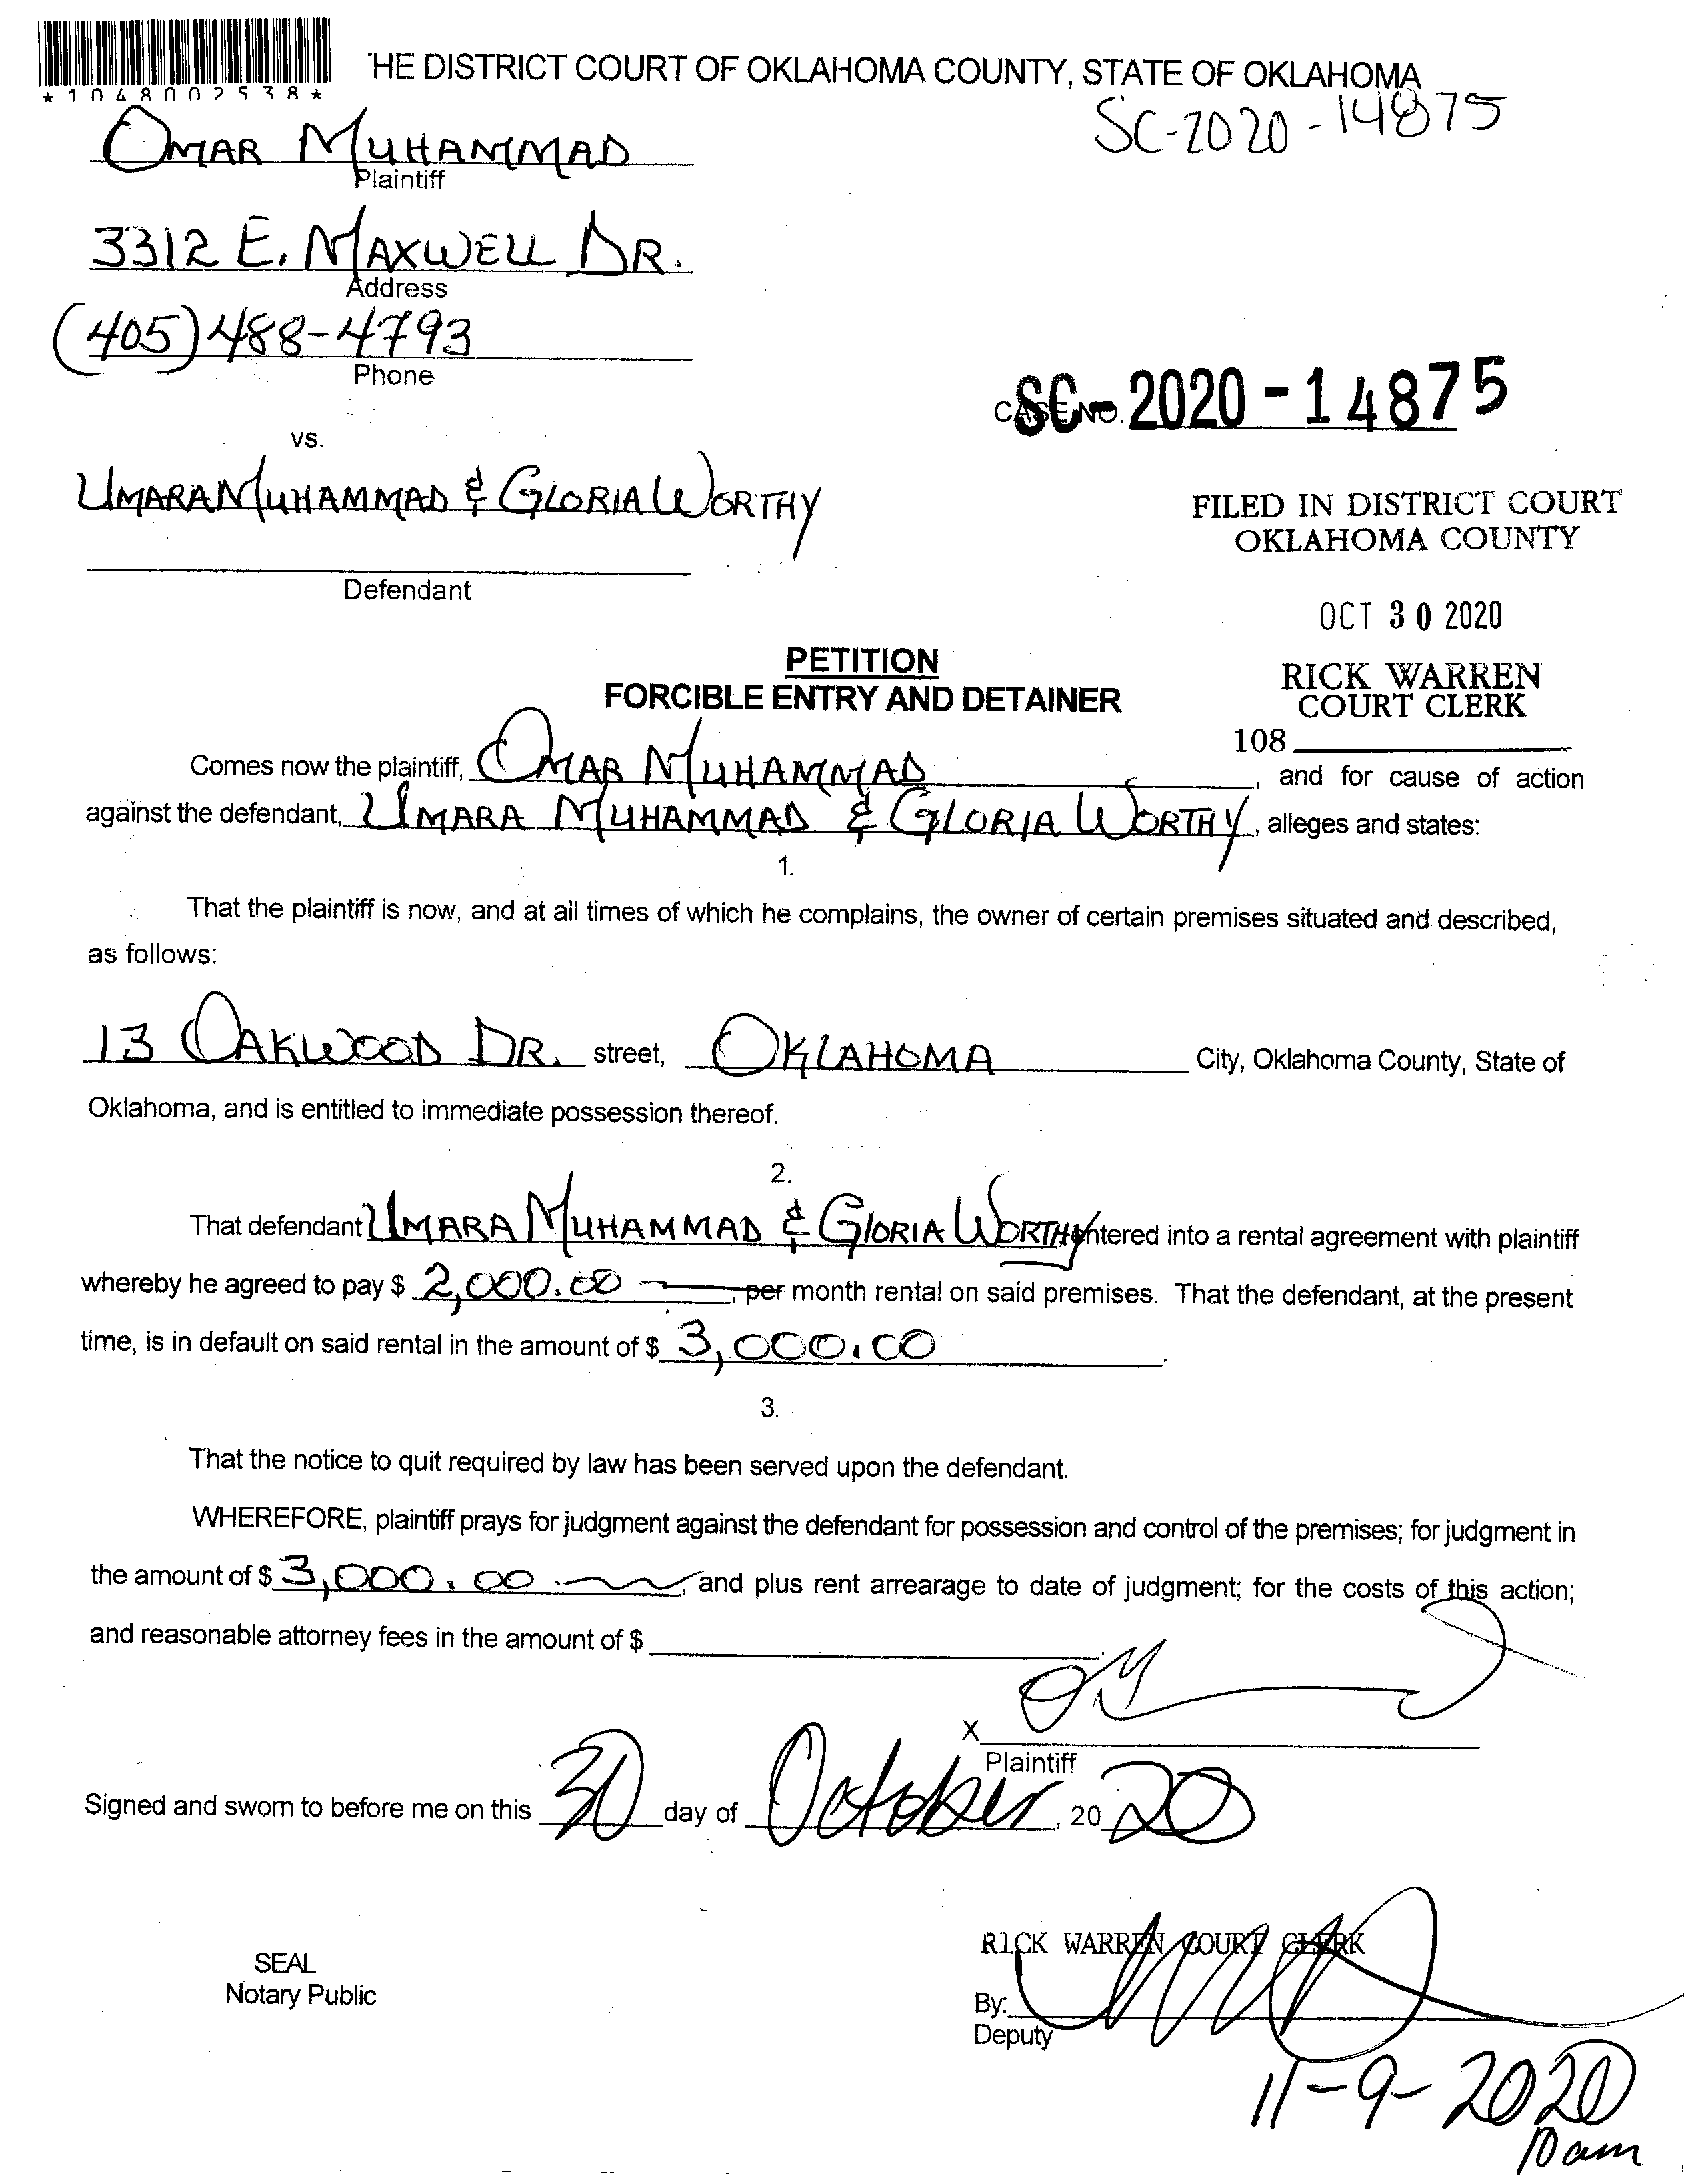 *1048002538*
HE DISTRICT COURT OF OKLAHOMA COUNTY, STATE OF OKLAHOMA
SC-2020-14875
OMAR MUHAMMAD
Plaintiff
3312 E. MAXWELL DR.
Address
(405) 488-4793
Phone
CASE NO. SC-2020-14875
vs.
UMARA MUHAMMAD & GLORIA WORTHY
Defendant
FILED IN DISTRICT COURT
OKLAHOMA COUNTY
OCT 30 2020
RICK WARREN
COURT CLERK
108
PETITION
FORCIBLE ENTRY AND DETAINER
Comes now the plaintiff, OMAR MUHAMMAD, and for cause of action
against the defendant, UMARA MUHAMMAD & GLORIA WORTHY, alleges and states:
1.
That the plaintiff is now, and at all times of which he complains, the owner of certain premises situated and described,
as follows:
13 OAKWOOD DR. street, OKLAHOMA City, Oklahoma County, State of
Oklahoma, and is entitled to immediate possession thereof.
2.
That defendant UMARA MUHAMMAD & GLORIA WORTHY entered into a rental agreement with plaintiff
whereby he agreed to pay $ 2,000.00, per month rental on said premises. That the defendant, at the present
time, is in default on said rental in the amount of $ 3,000.00.
3.
That the notice to quit required by law has been served upon the defendant.
WHEREFORE, plaintiff prays for judgment against the defendant for possession and control of the premises; for judgment in
the amount of $ 3,000.00, and plus rent arrearage to date of judgment; for the costs of this action;
and reasonable attorney fees in the amount of $
X
Plaintiff
Signed and sworn to before me on this 30 day of October, 2020
RICK WARREN COURT CLERK
SEAL
Notary Public
By:
Deputy
11-9-2020
10am